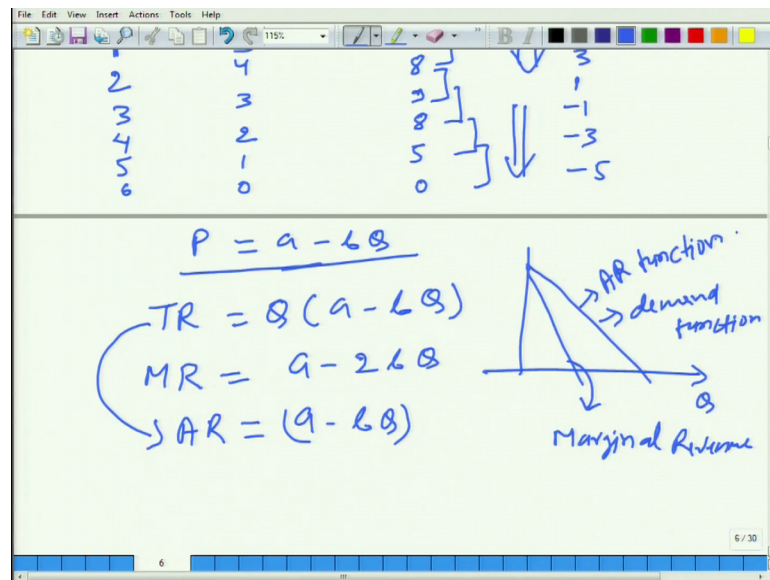 File Edit View Insert Actions Tools Help
115% B I
4 8 3
2 1
3 9 -1
3 8
4 2 -3
5 1 5 -5
6 0 0
P = a - bQ
TR = Q(a - bQ)
MR = a - 2bQ
AR = (a - bQ)
AR function.
demand
function
Q
Marginal Revenue
6/30
6